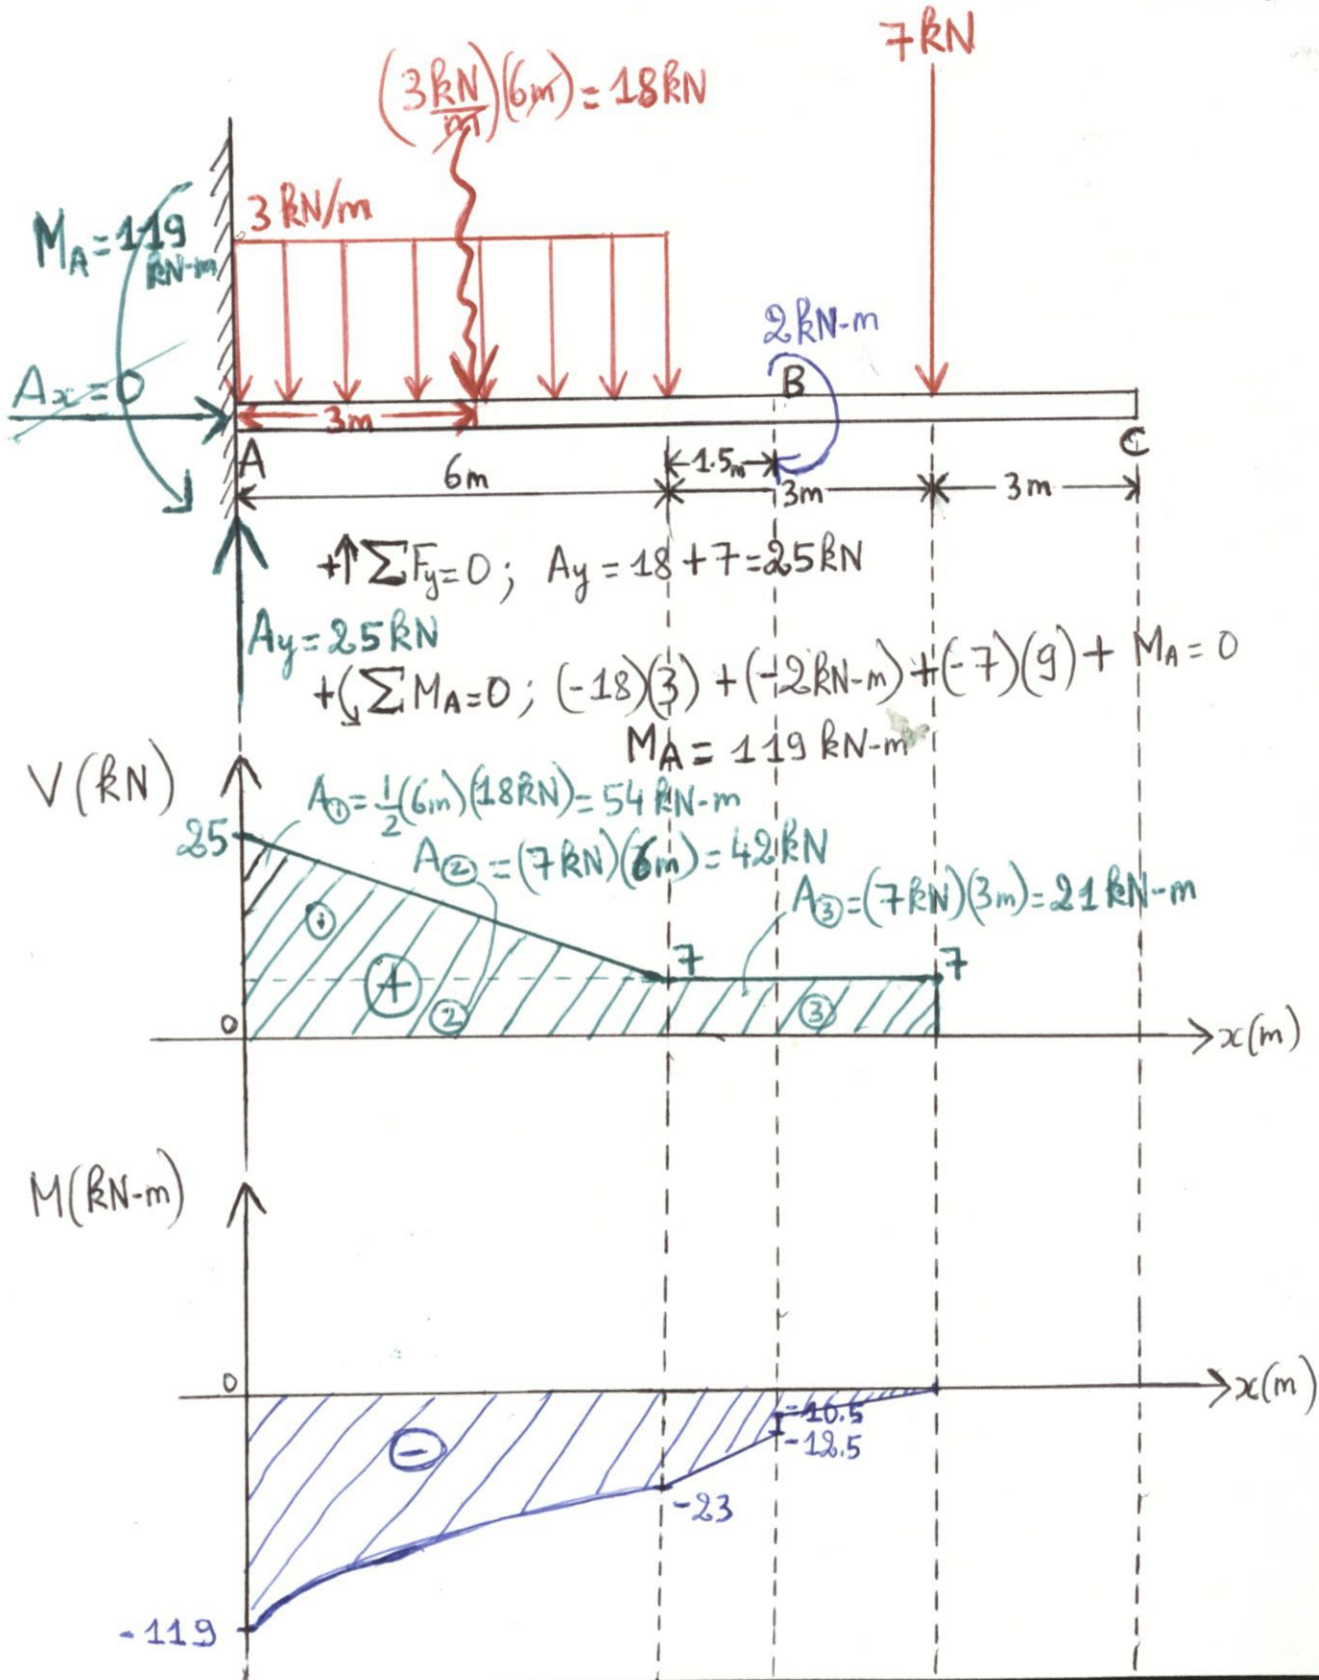 7kN
(3 kN/m)(6m) = 18kN
MA = 119 kN-m
3 kN/m
2kN-m
Ax = 0
B
3m
A
C
6m
1.5m
3m
3m
+↑ ΣFy = 0 ; Ay = 18 + 7 = 25kN
Ay = 25kN
+ ΣMA = 0 ; (-18)(3) + (-2kN-m) + (-7)(9) + MA = 0
MA = 119 kN-m
V(kN)
A① = 1/2 (6m)(18kN) = 54 kN-m
25
A② = (7kN)(6m) = 42kN
A③ = (7kN)(3m) = 21kN-m
①
7
7
+
②
③
0
x(m)
M(kN-m)
0
x(m)
-10.5
-12.5
−
-23
-119